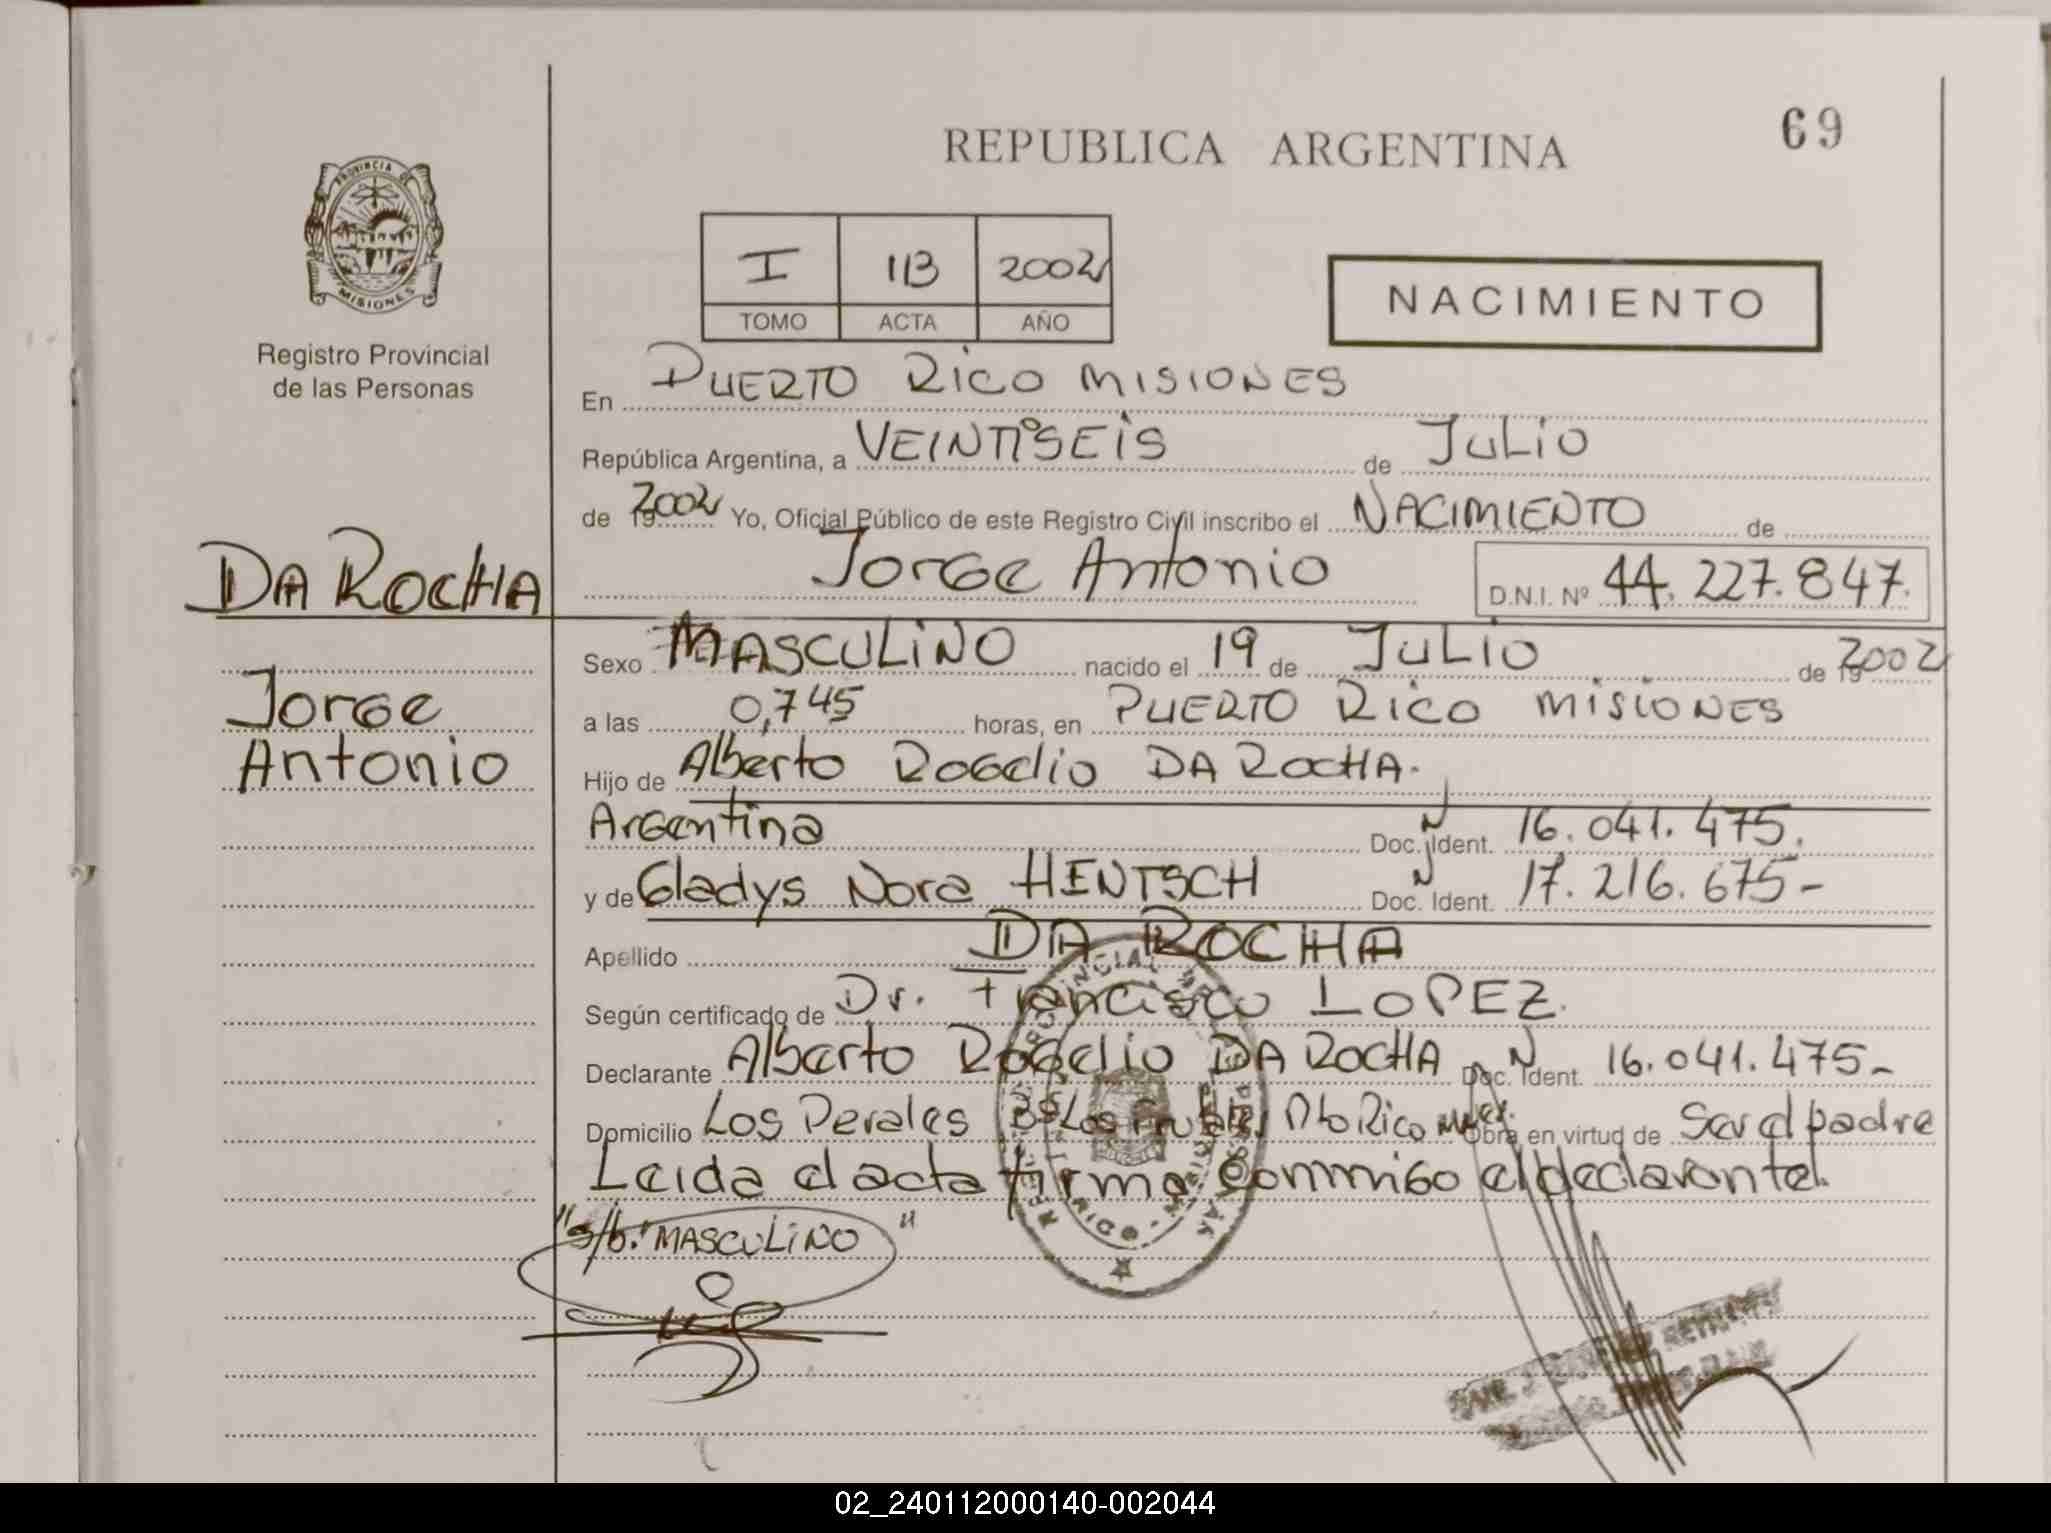 REPUBLICA ARGENTINA
69
PROVINCIA DE
MISIONES
Registro Provincial
de las Personas
I 113 2002
TOMO ACTA AÑO
NACIMIENTO
En PUERTO RICO MISIONES
República Argentina, a VEINTISEIS de JULIO
de 2002 Yo, Oficial Público de este Registro Civil inscribo el NACIMIENTO de
Jorge Antonio D.N.I. Nº 44.227.847.
DA ROCHA
Jorge
Antonio
Sexo MASCULINO nacido el 19 de JULIO de 2002
a las 0,745 horas, en PUERTO RICO MISIONES
Hijo de Alberto Rogelio DA ROCHA.
Argentina Doc. Ident. 16.041.475.
y de Gladys Nora HENTSCH Doc. Ident. 17.216.675-
Apellido DA ROCHA
Según certificado de Dr. Francisco LOPEZ.
Declarante Alberto Rogelio DA ROCHA Doc. Ident. 16.041.475-
Domicilio Los Perales Bº Los Pto Rico Obra en virtud de Ser el padre
Leida el acta firma Conmmigo el declarante.
"s/b." MASCULINO"
02_240112000140-002044